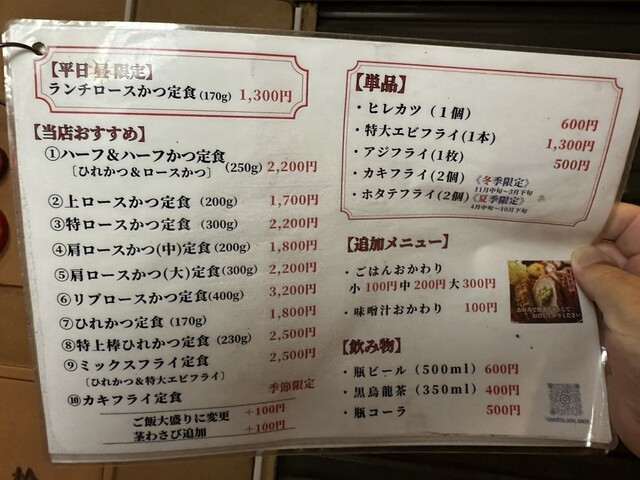 【平日昼限定】
ランチロースかつ定食(170g) 1,300円
【当店おすすめ】
①ハーフ＆ハーフかつ定食
〔ひれかつ＆ロースかつ〕 (250g) 2,200円
②上ロースかつ定食 (200g) 1,700円
③特ロースかつ定食 (300g) 2,200円
④肩ロースかつ(中)定食(200g) 1,800円
⑤肩ロースかつ(大)定食(300g) 2,200円
⑥リブロースかつ定食(400g) 3,200円
⑦ひれかつ定食 (170g) 1,800円
⑧特上棒ひれかつ定食 (230g) 2,500円
⑨ミックスフライ定食 2,500円
〔ひれかつ＆特大エビフライ〕
⑩カキフライ定食 季節限定
ご飯大盛りに変更 +100円
茎わさび追加 +100円
【単品】
・ヒレカツ（１個） 600円
・特大エビフライ(1本) 1,300円
・アジフライ(1枚) 500円
・カキフライ(2個) 《冬季限定》
11月中旬〜3月下旬
・ホタテフライ(2個) 《夏季限定》
4月中旬〜10月下旬
【追加メニュー】
・ごはんおかわり
小 100円 中 200円 大 300円
・味噌汁おかわり 100円
【飲み物】
・瓶ビール (500ml) 600円
・黒烏龍茶 (350ml) 400円
・瓶コーラ 500円